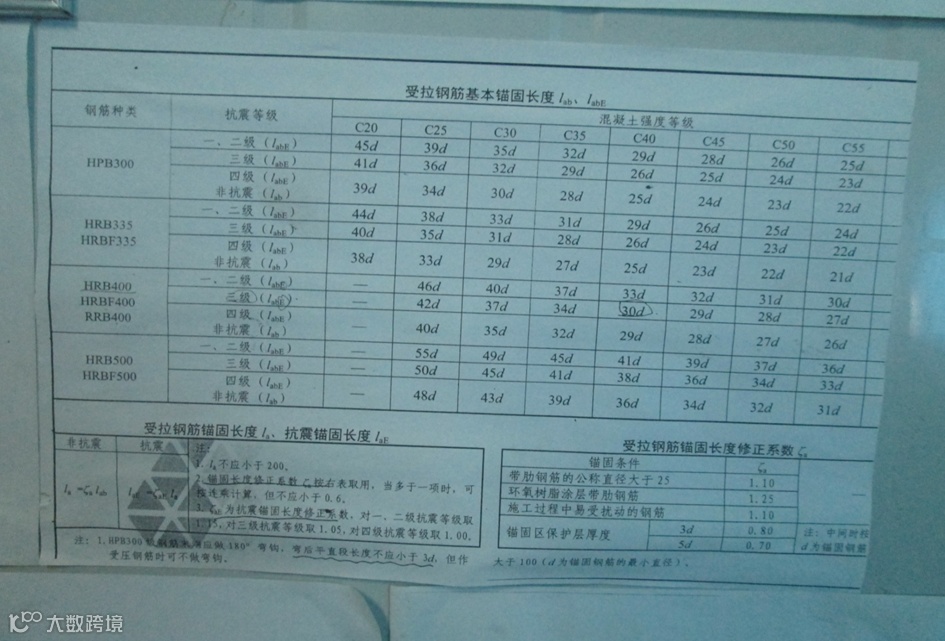 受拉钢筋基本锚固长度 lab、labE
钢筋种类 抗震等级 混凝土强度等级
C20 C25 C30 C35 C40 C45 C50 C55
HPB300
一、二级 (labE) 45d 39d 35d 32d 29d 28d 26d 25d
三级 (labE) 41d 36d 32d 29d 26d 25d 24d 23d
四级 (labE)
非抗震 (lab) 39d 34d 30d 28d 25d 24d 23d 22d
HRB335
HRBF335
一、二级 (labE) 44d 38d 33d 31d 29d 26d 25d 24d
三级 (labE) 40d 35d 31d 28d 26d 24d 23d 22d
四级 (labE)
非抗震 (lab) 38d 33d 29d 27d 25d 23d 22d 21d
HRB400
HRBF400
RRB400
一、二级 (labE) — 46d 40d 37d 33d 32d 31d 30d
三级 (labE) — 42d 37d 34d 30d 29d 28d 27d
四级 (labE)
非抗震 (lab) — 40d 35d 32d 29d 28d 27d 26d
HRB500
HRBF500
一、二级 (labE) — 55d 49d 45d 41d 39d 37d 36d
三级 (labE) — 50d 45d 41d 38d 36d 34d 33d
四级 (labE)
非抗震 (lab) — 48d 43d 39d 36d 34d 32d 31d
受拉钢筋锚固长度 la、抗震锚固长度 laE
非抗震 抗震
la =ζa lab
注:
1. la不应小于200。
2. 锚固长度修正系数 ζa按右表取用，当多于一项时，可
按连乘计算，但不应小于0.6。
3. 为抗震锚固长度修正系数，对一、二级抗震等级取
1.15,对三级抗震等级取1.05,对四级抗震等级取1.00。
受拉钢筋锚固长度修正系数 ζa
锚固条件 ζa
带肋钢筋的公称直径大于25 1.10
环氧树脂涂层带肋钢筋 1.25
施工过程中易受扰动的钢筋 1.10
锚固区保护层厚度 3d 0.80
5d 0.70
注: 中间时按
d为锚固钢筋
注: 1.HPB300 应做180°弯钩，弯后平直段长度不应小于3d，但作
受压钢筋时可不做弯钩。
大于100 (d为锚固钢筋的最小直径)。
大数跨境